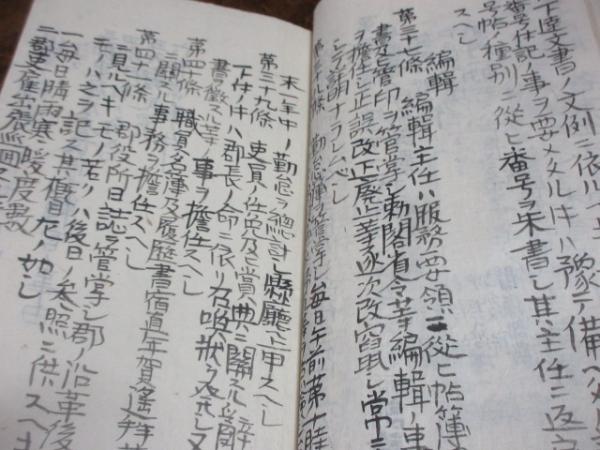 下達文書ノ文例ニ依ル
番号住記ノ事ヲ要メタル片ハ豫テ備ヘ
号帖ノ種別ニ從ヒ番号ヲ朱書シ其主任ニ返
スヘシ
編輯
第三十七條 編輯主任ハ服務要領ニ從ヒ帖簿
書及ヒ官印ヲ管掌シ勅閣省令等編輯ノ事
ヲ擔任シ正誤改正廃止等逐次改竄シ常ニ
シテ詳明ナラシムベシ
掌シ毎日午前第十時
末一年中ノ勤怠ヲ總計シ縣廳ニ上申スヘシ
第三十九條 吏員ノ任免及ヒ賞典ニ關スル
下付ハ郡長ノ命ニ依リ召喚状ヲ発シ又
書ヲ徴スル等ノ事ヲ擔任スヘシ
第四十條 職員名簿及履歴書宿直年賀遙拜
ニ關スル事務ヲ擔任スヘシ
第四十一條 郡役所日誌ヲ管掌シ郡ノ沿革後
ニ見ルヘキモノ若クハ後日ノ参照ニ供スヘキ
モノハ之ヲ記ス其概目左ノ如シ
一毎日晴雨寒暖度數
二郡吏雇出張巡回